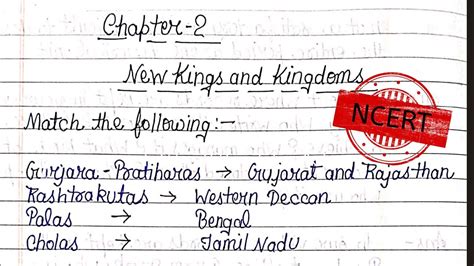 Chapter-2
New Kings and Kingdoms
NCERT
Match the following:-
Gurjara-Pratiharas → Gujarat and Rajasthan
Rashtrakutas → Western Deccan
Palas → Bengal
Cholas → Tamil Nadu